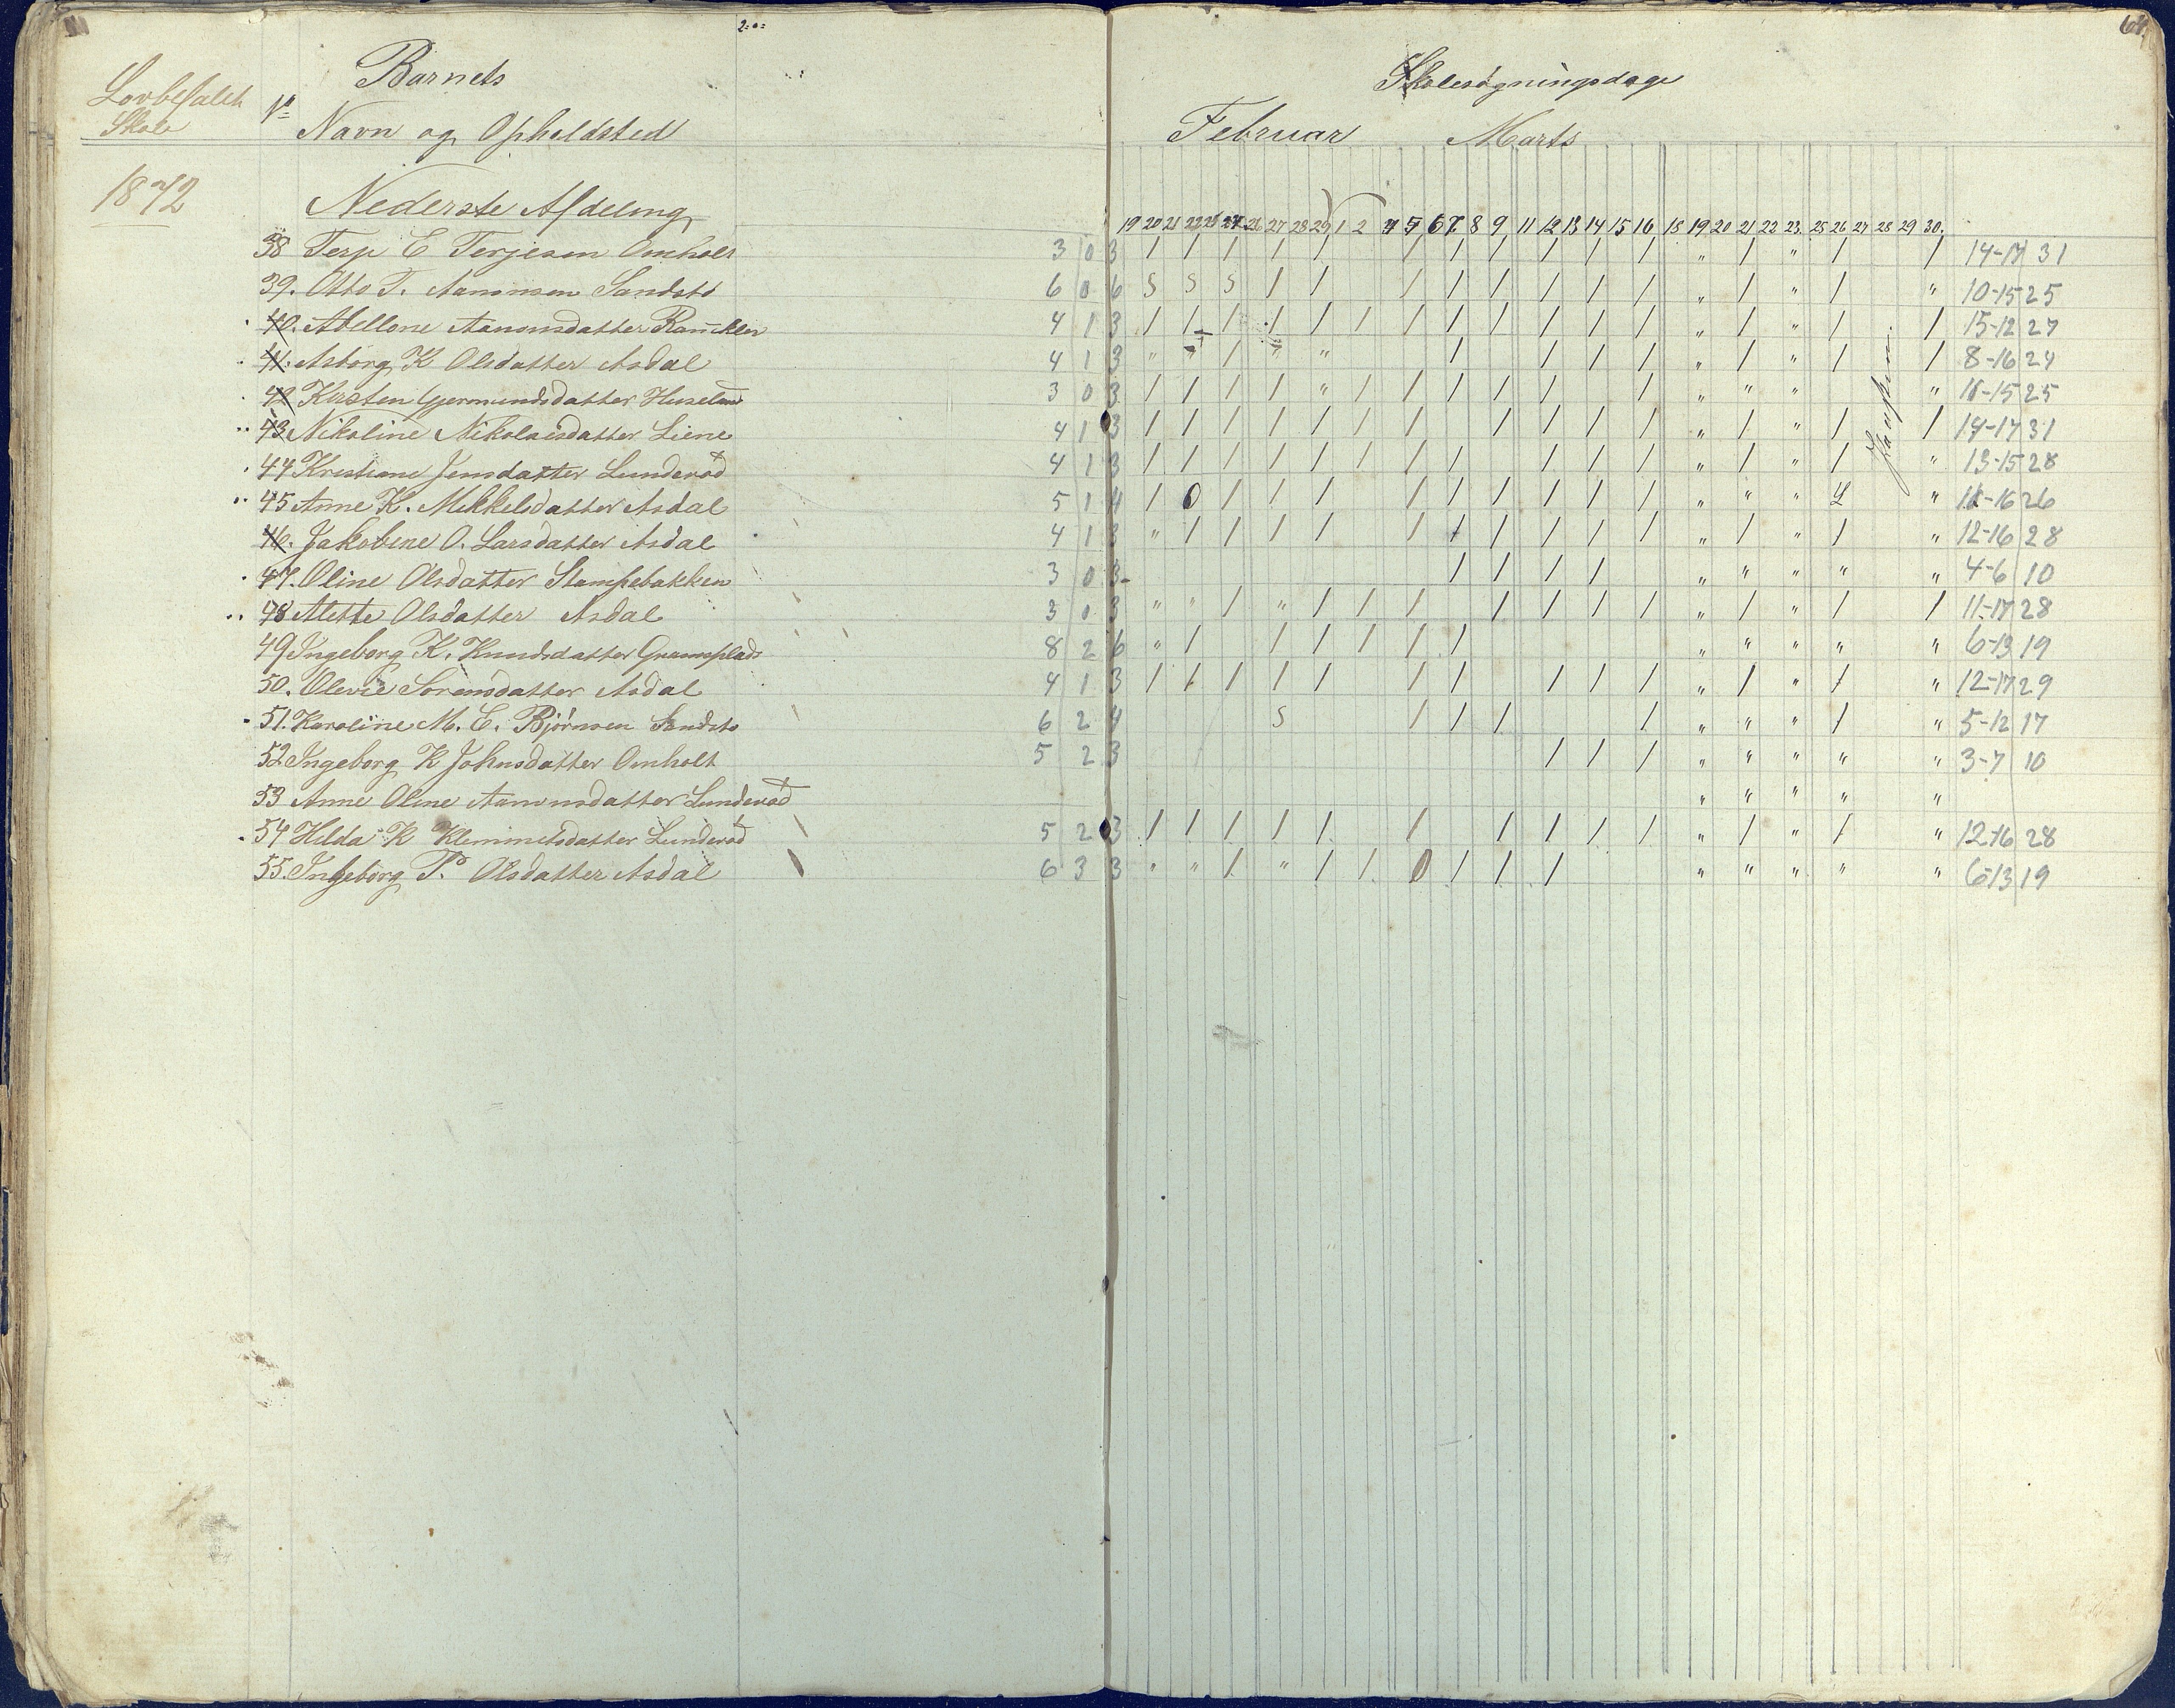 2
64
Barnets
Lovbefalet
Skole
No
Navn og Opholdsted
Skolesøgningsdage
Februar Marts
1872
Nederste Afdeling
19 20 21 22 23 24 26 27 28 29 1 2 4 5 6 7 8 9 11 12 13 14 15 16 18 19 20 21 22 23 25 26 27 28 29 30.
38 Terje E Terjesen Omholt 3 0 3 / / / / / / / / / / / / " / " / / 14-17 31
39. Otto T. Aanonsen Sandstø 6 0 6 S S S / / / / / / / / / " / " / " 10-15 25
40. Abellone Aanonsdatter 4 1 3 / / / / / / / / / / / / / " / " / / 15-12 27
41. Asborg K Olsdatter Asdal 4 1 3 " " / " " / / / / / " / " / / 8-16 24
42 Kirsten Gjermundsdatter 3 0 3 / / / / " / / / / / / " " " " 11-15 25
43 Nikoline Nikolaisdatter Liene 4 1 3 / / / / / / / / / / / / " / " / / 14-17 31
44 Kristiane Jensdatter Lunderød 4 1 3 / / / / / / / / / / / / " / " / " 13-15 28
45 Anne K. Mikkelsdatter Asdal 5 1 4 / 0 / / / / / / / / / / " " " " 11-16 26
46. Jakobine O. Larsdatter Asdal 4 1 3 " / / / / / / / / / / / " / " / " 12-16 28
47. Oline Olsdatter Stampebakken 3 0 3 / / / / " " " " " 4-6 10
48 Alette Olsdatter Asdal 3 0 3 " " / " / / / / / / / / " / " / / 11-17 28
49 Ingeborg K. Knudsdatter 8 2 6 " / / / / / / " " " " " 6-13 19
50. Olevie Sørensdatter Asdal 4 1 3 / / / / / / / / / / " / " / " 12-17 29
51. Karoline M. E. Bjørnsen Sandstø 6 2 4 S / / / / " " " / " 5-12 17
52 Ingeborg K Johnsdatter Omholt 5 2 3 / / / " " " " " 3-7 10
53 Anne Oline Aanonsdatter Lunderød " " " " "
54 Hilda K Klemmetsdatter Lunderød 5 2 3 / / / / / / / / / / " / " / " 12-16 28
55. Ingeborg T. Olsdatter Asdal 6 3 3 " " / " / / 0 / / / " " " " " 6-13 19